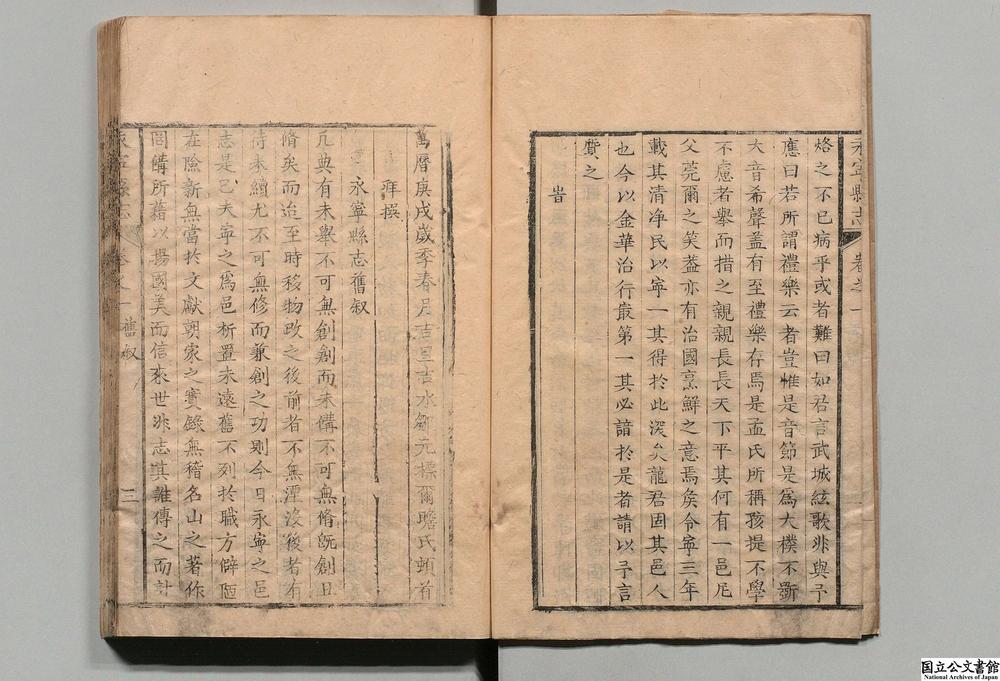 永寧縣志 卷之一
烙之不已病乎或者難曰如君言武城絃歌非與予
應曰若所謂禮樂云者豈惟是音節是爲大樸不斲
大音希聲葢有至禮樂存焉是孟氏所稱孩提不學
不慮者舉而措之親親長長天下平其何有一邑尼
父莞爾之笑葢亦有治國烹鮮之意焉矦令寧三年
載其清淨民以寧一其得於此深矣龍君固其邑人
也今以金華治行㝡第一其必諳於是者請以予言
質之
旹
萬曆庚戌歲季春月吉旦吉水鄒元標爾瞻氏頓首
拜撰
永寧縣志舊叙
凢典有未舉不可無創創而未備不可無脩旣創且
脩矣而迨至時移物改之後前者不無湮沒後者有
待未續尤不可無修而兼創之功則今日永寧之邑
志是已夫寧之爲邑析置未遠舊不列於職方僻陋
在險新無當於文獻朝家之實錄無稽名山之著作
罔備所藉以揚國美而信來世非志其誰傳之而計
永寧縣志 卷之一 舊叙 三
国立公文書館
National Archives of Japan